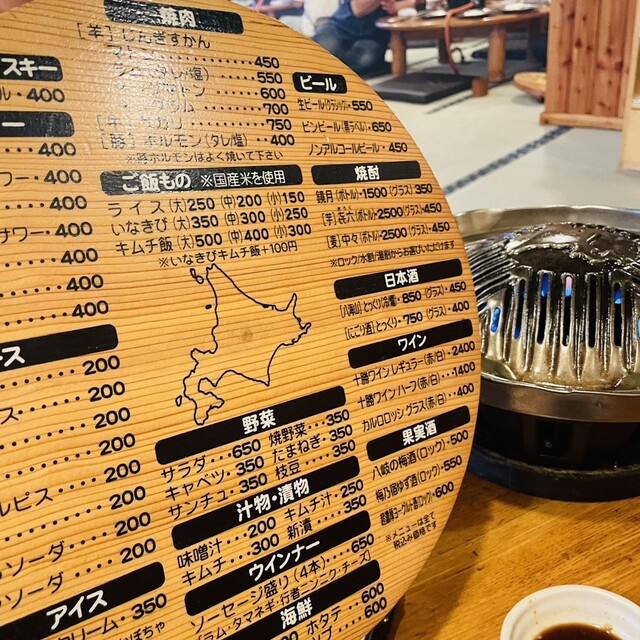 焼肉
[羊]じんぎすかん
マトン‥‥‥450
(タレ/塩)‥‥550
‥‥600
‥‥700
[牛]サガリ‥‥‥750
[豚]ホルモン(タレ/塩)‥‥400
※豚ホルモンはよく焼いて下さい
ご飯もの ※国産米を使用
ライス(大)250(中)200(小)150
いなきび(大)350(中)300(小)250
キムチ飯(大)500(中)400(小)300
※いなきびキムチ飯+100円
スキー
ル‥400
ー
400
ワー‥400
400
サワー‥400
400
400
400
ース
200
ス‥‥200
200
200
ルピス‥‥200
200
ソーダ‥‥200
ソーダ‥‥200
アイス
クリーム‥350
ぼちゃ
ビール
生ビール(クラシック)‥550
ビンビール(黒ラベル)‥650
ノンアルコールビール‥450
焼酎
鏡月(ボトル)‥1500(グラス)350
[芋]㐂六(ボトル)‥2500(グラス)‥450
[麦]中々(ボトル)‥2500(グラス)‥450
※ロック/水割/湯割からお選びいただけます
日本酒
[八海山]とっくり(冷/燗)‥850(グラス)‥450
[にごり酒]とっくり‥750(グラス)‥400
ワイン
十勝ワイン レギュラー(赤/白)‥2400
十勝ワイン ハーフ(赤/白)‥‥1400
カルロロッシ グラス(赤/白)‥‥400
果実酒
八岐の梅酒(ロック)‥500
梅乃宿ゆず酒(ロック)‥550
600
※メニューは全て
税込み価格です
野菜
サラダ‥‥650 焼野菜‥‥350
キャベツ‥350 たまねぎ‥350
サンチュ‥350 枝豆‥‥350
汁物・漬物
味噌汁‥‥200 キムチ汁‥250
キムチ‥‥300 新漬‥‥350
ウインナー
ソーセージ盛り(4本)‥‥650
(ラム・タマネギ・行者ニンニク・チーズ)
海鮮
600 ホタテ‥‥600
600